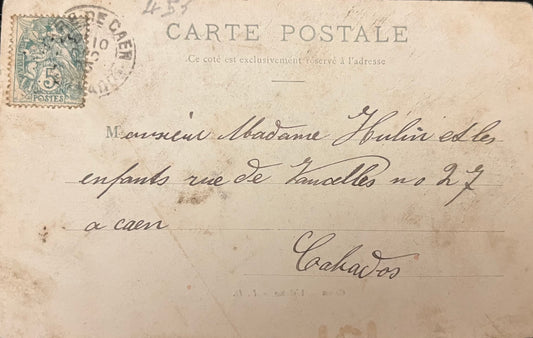 453
CARTE POSTALE
Ce côté est exclusivement réservé à l'adresse
DE CAEN
10
5
POSTES
Monsieur Madame Hulin et les
enfants rue de Vaucelles no 27
a caen
Calvados